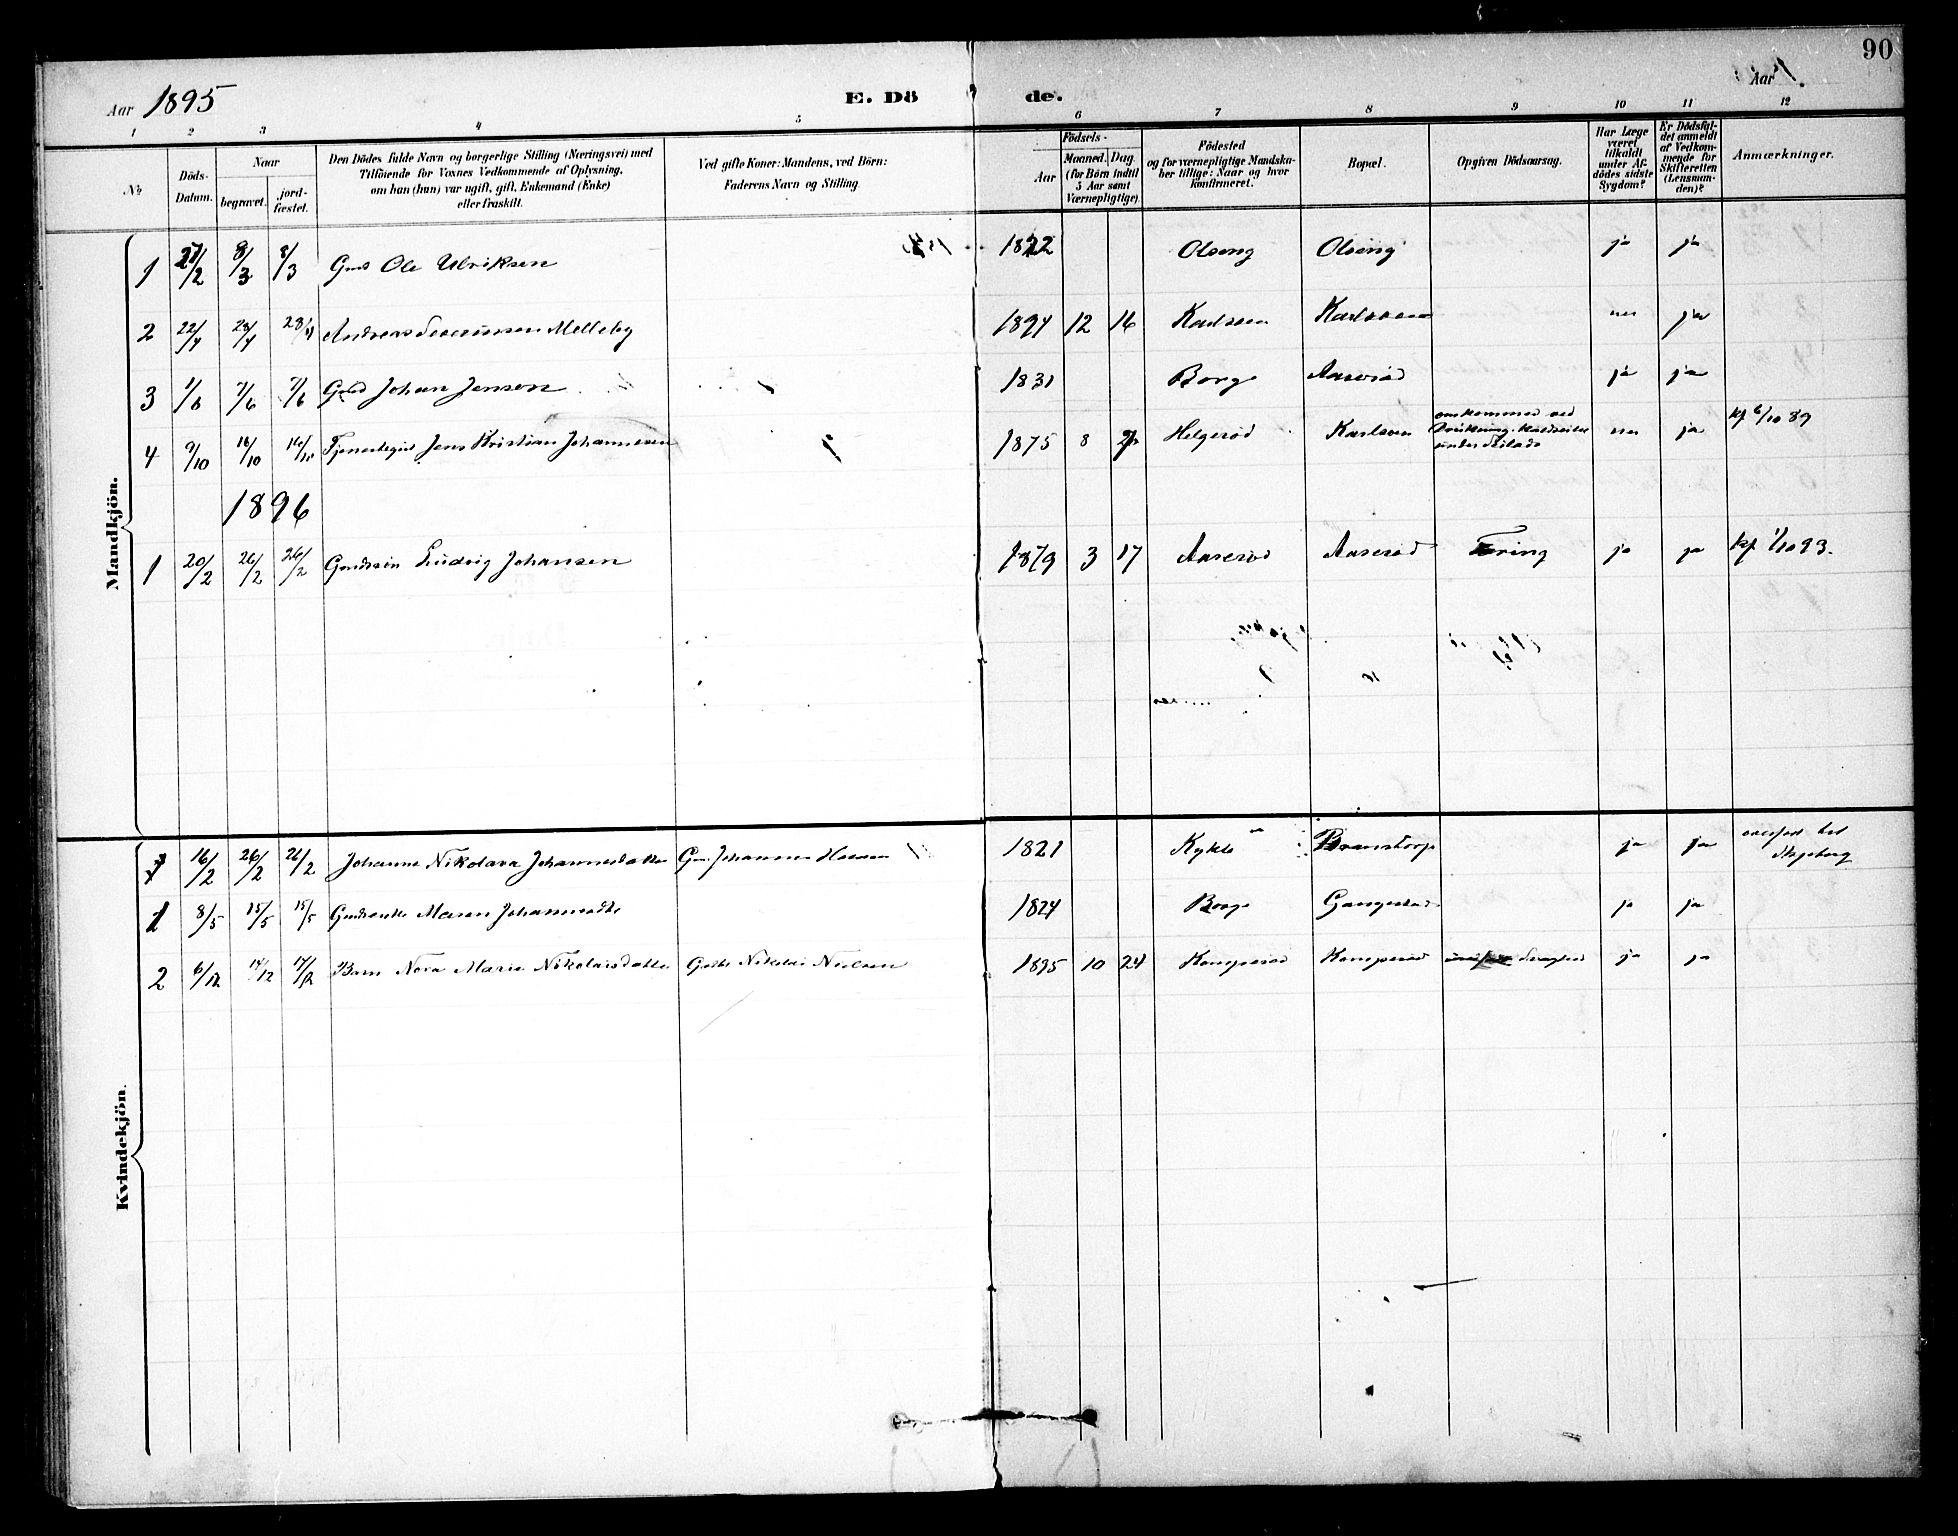 90
Aar 1895
E. Dö de.
Aar
1 2 3 4 5 6 7 8 9 10 11 12
No
Döds-Datum.
Naar
begravet.
jord-fæstet.
Den Dödes fulde Navn og borgerlige Stilling (Næringsvei) med
Tilföiende for Voxnes Vedkommende af Oplysning,
om han (hun) var ugift, gift, Enkemand (Enke)
eller fraskilt.
Ved gifte Koner: Mandens, ved Börn:
Faderens Navn og Stilling.
Födsels-
Aar
Maaned. Dag.
(for Börn indtil
5 Aar samt
Værnepligtige)
Födested
og for værnepligtige Mandska-
ber tillige: Naar og hvor
konfirmeret.
Bopæl.
Opgiven Dödsaarsag.
Har Læge
været
tilkaldt
under Af-
dödes sidste
Sygdom?
Er Dödsfal-
det anmeldt
af Vedkom-
mende for
Skifteretten
(Lensman-
den)?
Anmærkninger.
Mandkjön.
1 27/2 8/3 8/3 Gmd Ole Ulriksen 1822 Olseng Olseng ja ja
2 22/4 28/4 28/4 Andreas Melleby 1894 12 16 Karlsøen Karlsøen nei ja
3 1/6 7/6 7/6 Gmd Johan Jensen 1831 Borge Aaserød ja ja
4 9/10 16/10 16/10 Tjenestegut Jens Kristian Johannesen 1875 8 Helgerød Karlsøen omkommed ved
under Seilads nei ja kf 6/10 89
1896
1 20/2 26/2 26/2 Gmdssøn Ludvig Johansen 1879 3 17 Aaserød Aaserød Tæring ja ja kf. 1/10 93.
Kvindekjön.
1 16/2 26/2 26/2 Johanne Nikolava Johannesdatter Gm. Johannes 1821 Kykle Branstorp ja ja
1 8/5 15/5 15/5 Gmdsenke Maren Johannesdtr 1824 Borge Gangestad ja ja
2 6/12 14/12 17/12 Barn Nora Marie Nikolaisdatter Nikolai Nielsen 1895 10 24 Kamperød Kamperød Svaghed ja ja